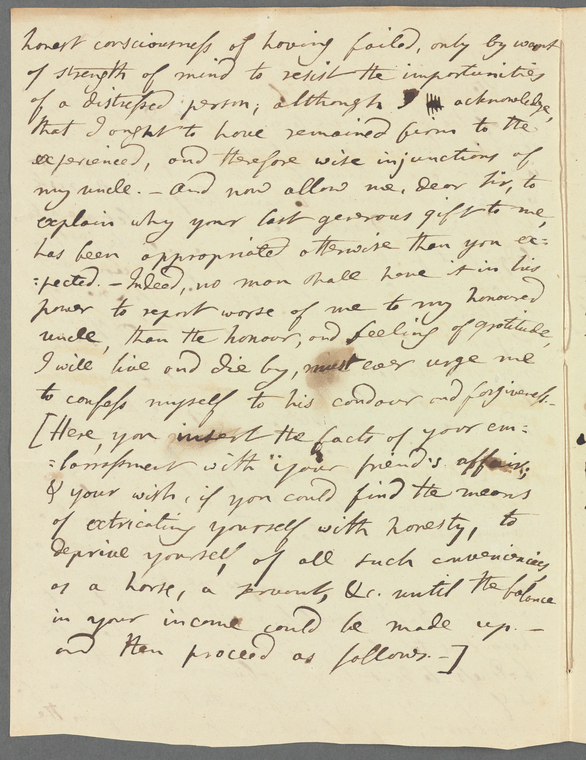 honest consciousness of having failed, only by want
of strength of mind to resist the importunities
of a distressed person; although I acknowledge,
that I ought to have remained firm to the
experienced, and therefore wise injunctions of
my uncle. - And now allow me, dear Sir, to
explain why your last generous gift to me,
has been appropriated otherwise than you ex=
:pected. - Indeed, no man shall have it in his
power to report worse of me to my honoured
uncle, than the honour, and feeling of gratitude,
I will live and die by, must ever urge me
to confess myself to his candour and forgiveness.-
[Here, you insert the facts of your em=
:barrassment with "your friend's affairs;
& your wish, if you could find the means
of extricating yourself with honesty, to
deprive yourself, of all such conveniencies
as a horse, a servant, &c. until the balance
in your income could be made up. -
and then proceed as follows. -]